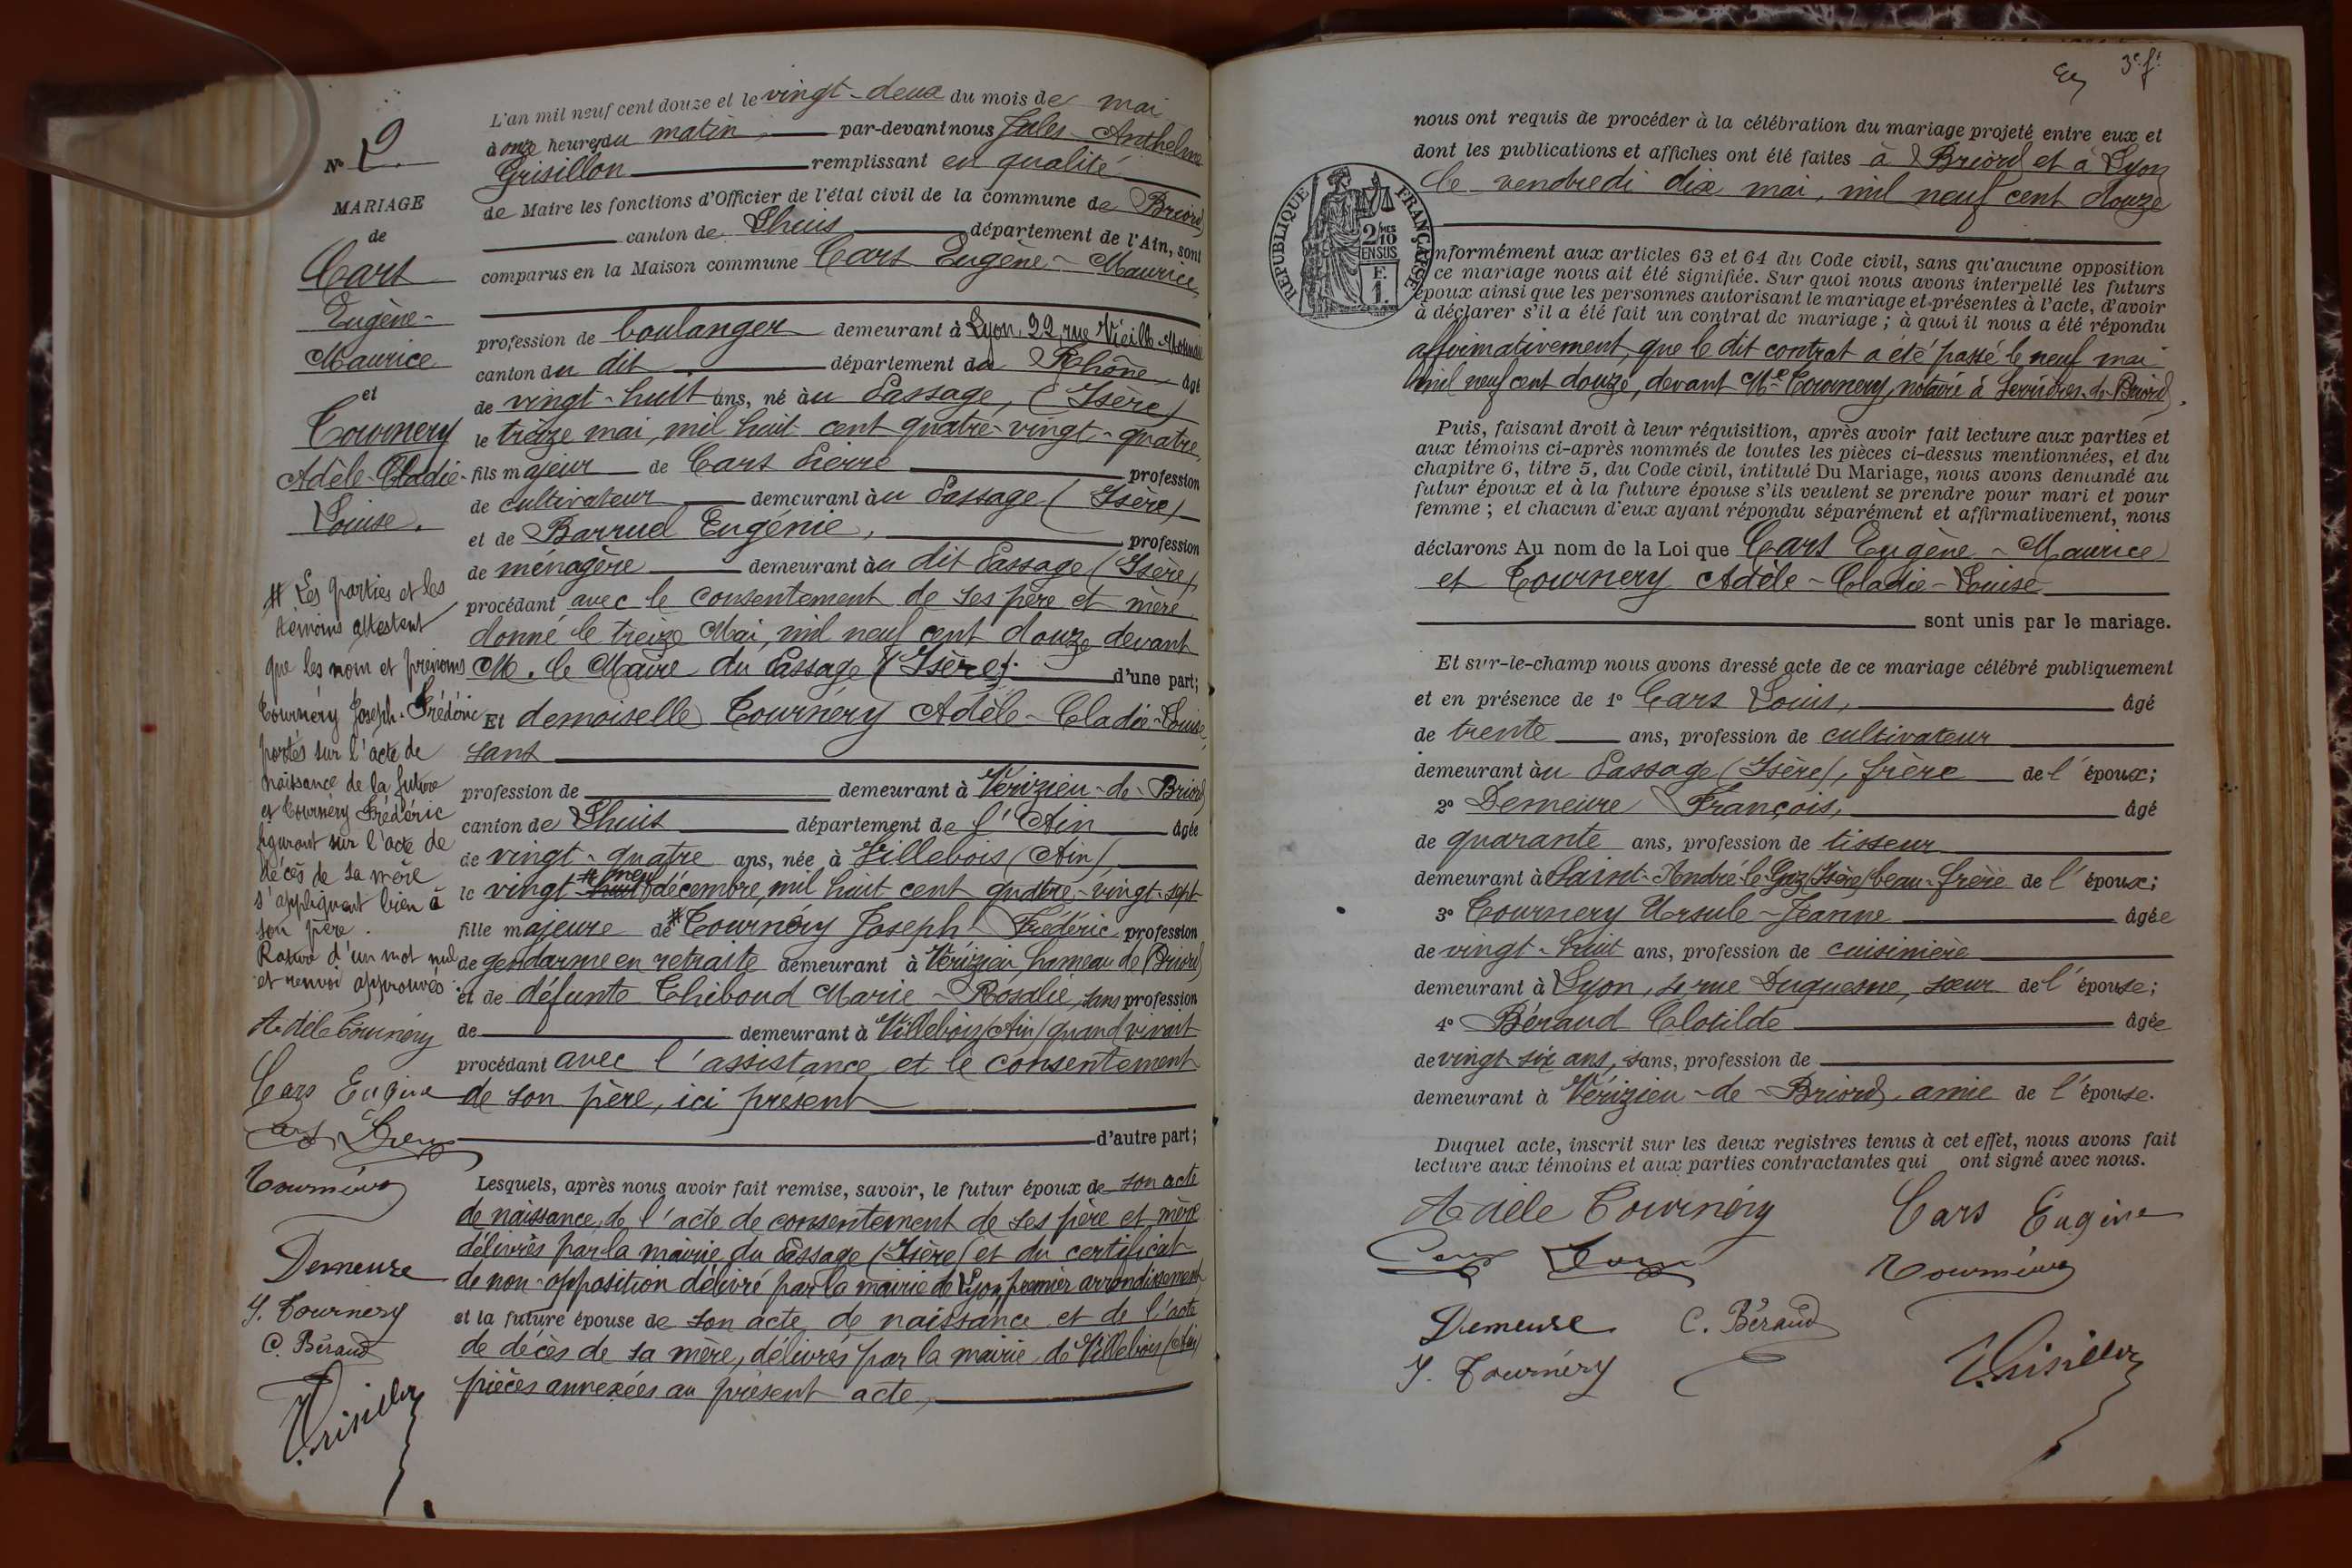 N° 2
MARIAGE
de
Cars
Eugène-
Maurice
et
Tournery
Adèle-Cladie-
Louise.
# Les parties et les
témoins attestent
que les nom et prénoms
Tournéry Joseph-Frédéric
portés sur l'acte de
naissance de la future
et Tournéry Frédéric
figurant sur l'acte de
décès de sa mère
s'appliquent bien à
son père.
Rature d'un mot nul
et renvoi approuvés.
Adèle Tournéry
Cars Eugène
Cars
Tournéry
Demeure
J. Tournery
C. Béraud
Grisillon
L'an mil neuf cent douze et le vingt-deux du mois de mai
à onze heures du matin, par-devant nous Jules-Anthelme
Grisillon remplissant en qualité
de Maire les fonctions d'Officier de l'état civil de la commune de Briord
canton de Lhuis département de l'Ain, sont
comparus en la Maison commune Cars Eugène-Maurice,
profession de boulanger demeurant à Lyon, 22, rue Vieille-Monnaie
canton du dit département du Rhône âgé
de vingt-huit ans, né au Passage, (Isère)
le treize mai, mil huit cent quatre-vingt-quatre,
fils majeur de Cars Pierre profession
de cultivateur demeurant au Passage (Isère)
et de Barruel Eugénie, profession
de ménagère demeurant au dit Passage (Isère),
procédant avec le consentement de ses père et mère
donné le treize Mai, mil neuf cent douze devant
M. le Maire du Passage (Isère). d'une part;
Et demoiselle Tournéry Adèle-Cladie-Louise,
sans
profession de demeurant à Vérizieu-de-Briord
canton de Lhuis département de l'Ain âgée
de vingt-quatre ans, née à Villebois (Ain),
le vingt-huit # neuf décembre, mil huit cent quatre-vingt-sept
fille majeure de # Tournéry Joseph-Frédéric profession
de gendarme en retraite demeurant à Vérizieu, hameau de Briord
et de défunte Thiboud Marie-Rosalie, sans profession
de demeurant à Villebois (Ain) quand vivait
procédant avec l'assistance et le consentement
de son père, ici présent
d'autre part;
Lesquels, après nous avoir fait remise, savoir, le futur époux de son acte
de naissance, de l'acte de consentement de ses père et mère
délivrés par la mairie du Passage (Isère) et du certificat
de non-opposition délivré par la mairie de Lyon, premier arrondissement
et la future épouse de son acte de naissance et de l'acte
de décès de sa mère, délivrés par la mairie de Villebois (Ain)
pièces annexées au présent acte,
3e ft
nous ont requis de procéder à la célébration du mariage projeté entre eux et
dont les publications et affiches ont été faites à Briord et à Lyon
le vendredi dix mai, mil neuf cent douze
RÉPUBLIQUE FRANÇAISE
2/10 EN SUS
F.
1.
nformément aux articles 63 et 64 du Code civil, sans qu'aucune opposition
ce mariage nous ait été signifiée. Sur quoi nous avons interpellé les futurs
époux ainsi que les personnes autorisant le mariage et présentes à l'acte, d'avoir
à déclarer s'il a été fait un contrat de mariage; à quoi il nous a été répondu
affirmativement, que le dit contrat a été passé le neuf mai
mil neuf cent douze, devant Me Tournery, notaire à Serrières-de-Briord.
Puis, faisant droit à leur réquisition, après avoir fait lecture aux parties et
aux témoins ci-après nommés de toutes les pièces ci-dessus mentionnées, et du
chapitre 6, titre 5, du Code civil, intitulé Du Mariage, nous avons demandé au
futur époux et à la future épouse s'ils veulent se prendre pour mari et pour
femme; et chacun d'eux ayant répondu séparément et affirmativement, nous
déclarons Au nom de la Loi que Cars Eugène-Maurice
et Tournery Adèle-Cladie-Louise
sont unis par le mariage.
Et sur-le-champ nous avons dressé acte de ce mariage célébré publiquement
et en présence de 1° Cars Louis, âgé
de trente ans, profession de cultivateur
demeurant au Passage (Isère), frère de l'époux;
2° Demeure François, âgé
de quarante ans, profession de tisseur
demeurant à Saint-André-le-Gaz (Isère) beau-frère de l'époux;
3° Tournery Ursule-Jeanne âgée
de vingt-huit ans, profession de cuisinière
demeurant à Lyon, rue Duquesne, sœur de l'épouse;
4° Béraud Clotilde âgée
de vingt-six ans, sans, profession de
demeurant à Vérizieu-de-Briord, amie de l'épouse.
Duquel acte, inscrit sur les deux registres tenus à cet effet, nous avons fait
lecture aux témoins et aux parties contractantes qui ont signé avec nous.
Adèle Tournéry Cars Eugène
Cars Tournéry
Demeure C. Béraud
J. Tournéry Grisillon